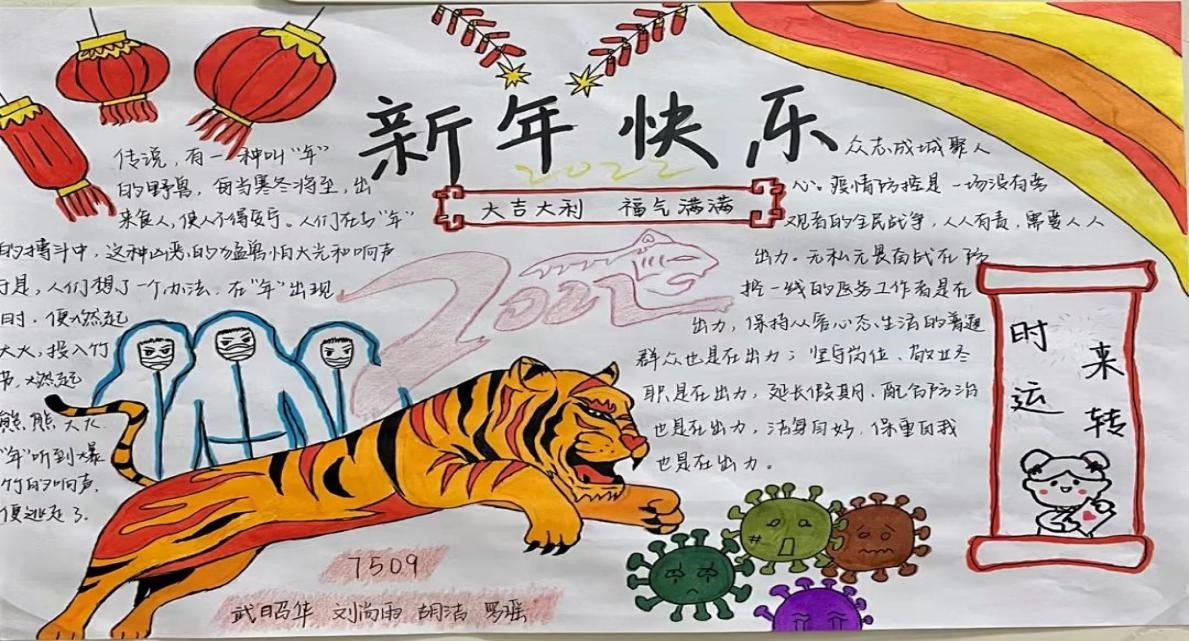 新年快乐
2022
大吉大利 福气满满
传说,有一种叫“年”
的野兽,每当寒冬将至,出
来食人,使人不得安宁。人们在与“年”
的搏斗中,这种凶恶的猛兽怕火光和响声
于是,人们想了一个办法,在“年”出现
时,便燃起
大火,投入竹
节,燃起
熊熊大火.
“年”听到爆
竹的响声,
便逃走了.
2022
众志成城聚人
心。疫情防控是一场没有旁
观者的全民战争,人人有责,需要人人
出力。无私无畏奋战在防
控一线的医务工作者是在
出力,保持从容心态、生活的普通
群众也是在出力;坚守岗位、敬业尽
职是在出力,延长假期、配合防治
也是在出力,洁身自好,保重自我
也是在出力。
时来
运转
7509
武昭华 刘尚雨 胡洁 罗瑶